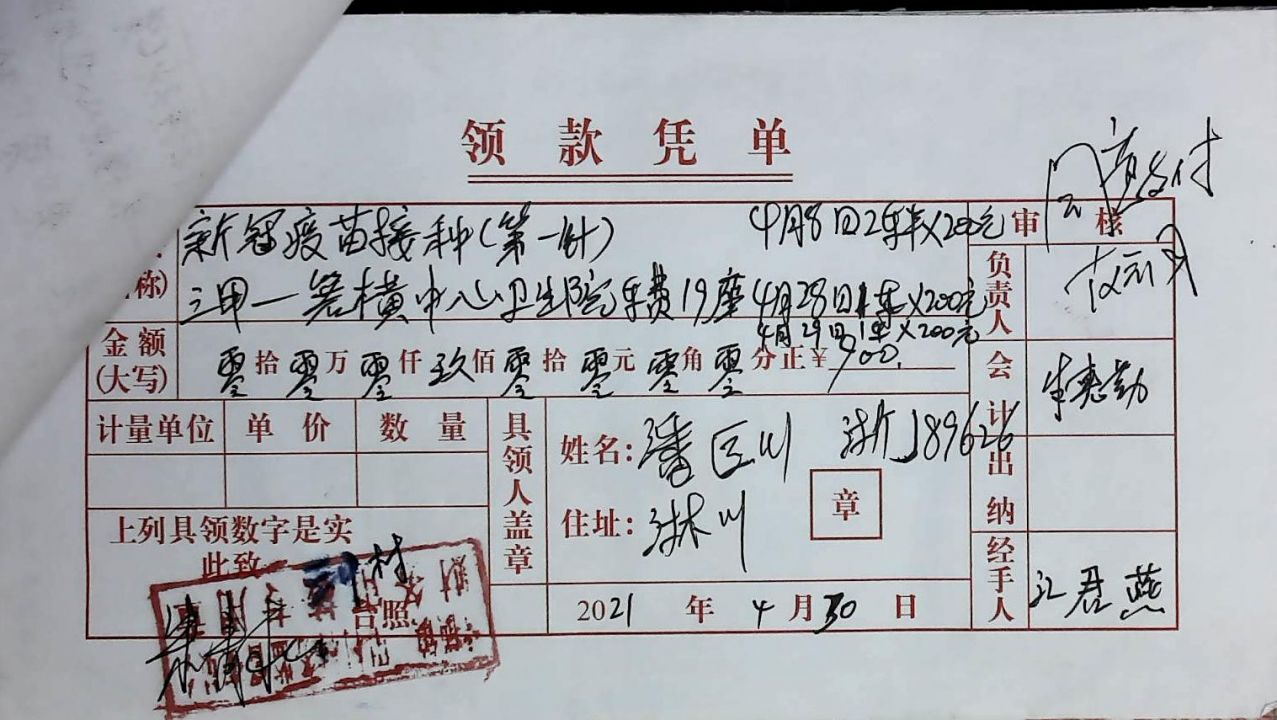 领款凭单
新冠疫苗接种(第一针) 4月8日2车×200元
三甲一箬横中心卫生院车费19座 4月28日1车×200元
4月29日1车×200元
称)
金额(大写) 零拾零万零仟玖佰零拾零元零角零分正¥900.
计量单位 单价 数量
具领人盖章
姓名:潘 川 浙J89626
住址:淋川
章
上列具领数字是实
此致
村
台照
2021年4月30日
审核
支付
负责人
会计
出纳
经手人 江君燕